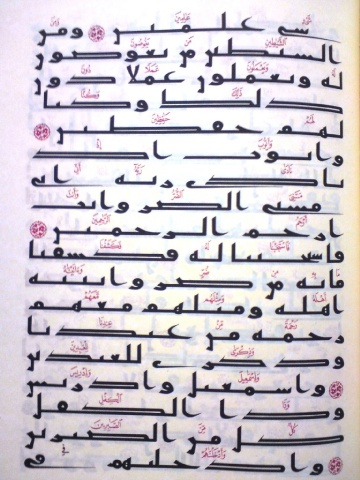 شيء علمين ومن
الشيطين من يغوصون
له ويعملون عملا دون
ذلك وكنا
لهم حفظين
وأيوب إذ
نادى ربه أني
مسني الضر وأنت
أرحم الرحمين
فاستجبنا له فكشفنا
ما به من ضر وءاتينه
أهله ومثلهم معهم
رحمة من عندنا
وذكرى للعبدين
وإسمعيل وإدريس
وذا الكفل
كل من الصبرين
وأدخلنهم في